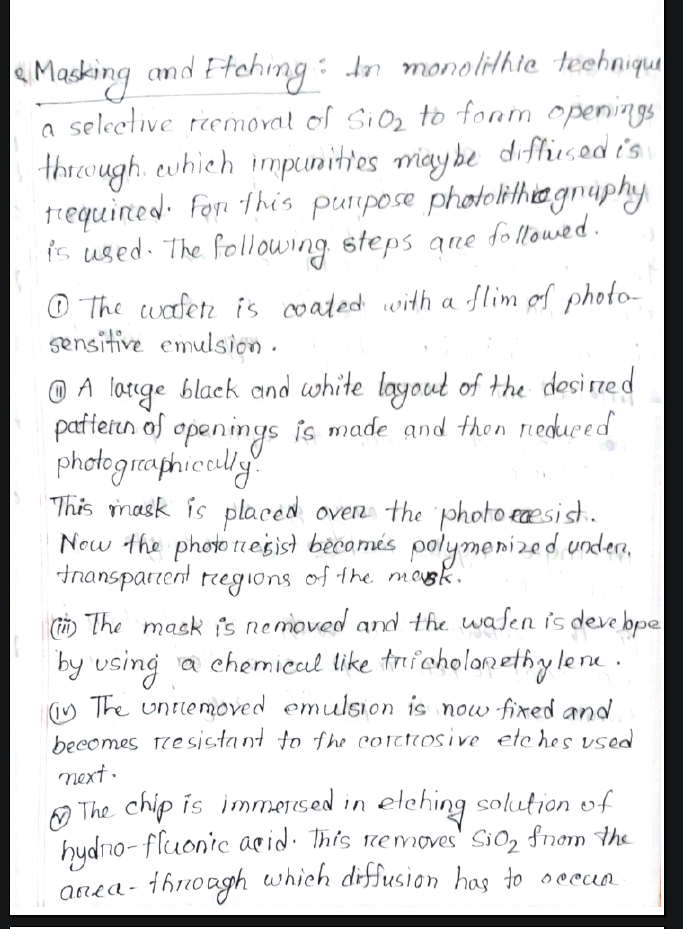 Masking and Etching: In monolithic technique
a selective removal of SiO2 to form openings
through which impurities maybe diffused is
required. For this purpose photolithography
is used. The following steps are followed.
(i) The wafer is coated with a flim of photo-
sensitive emulsion.
(ii) A large black and white layout of the desired
pattern of openings is made and then reduced
photographically.
This mask is placed over the photoresist.
Now the photoresist becomes polymerized under
transparent regions of the mask.
(iii) The mask is removed and the wafer is develope
by using a chemical like tricholorethylene.
(iv) The unremoved emulsion is now fixed and
becomes resistant to the corrosive etches used
next.
(v) The chip is immersed in etching solution of
hydro-fluoric acid. This removes SiO2 from the
area-through which diffusion has to occur